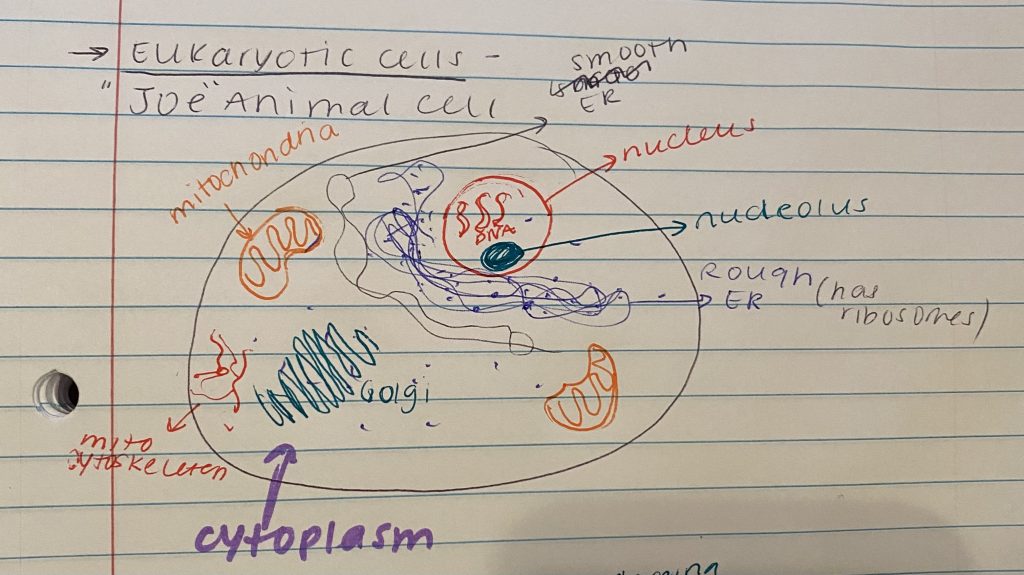 → Eukaryotic cells -
"JOE" Animal cell
smooth
ER
mitochondria
nucleus
DNA
nucleolus
Rough
ER
(has
ribosomes)
Golgi
cytoskeleten
cytoplasm